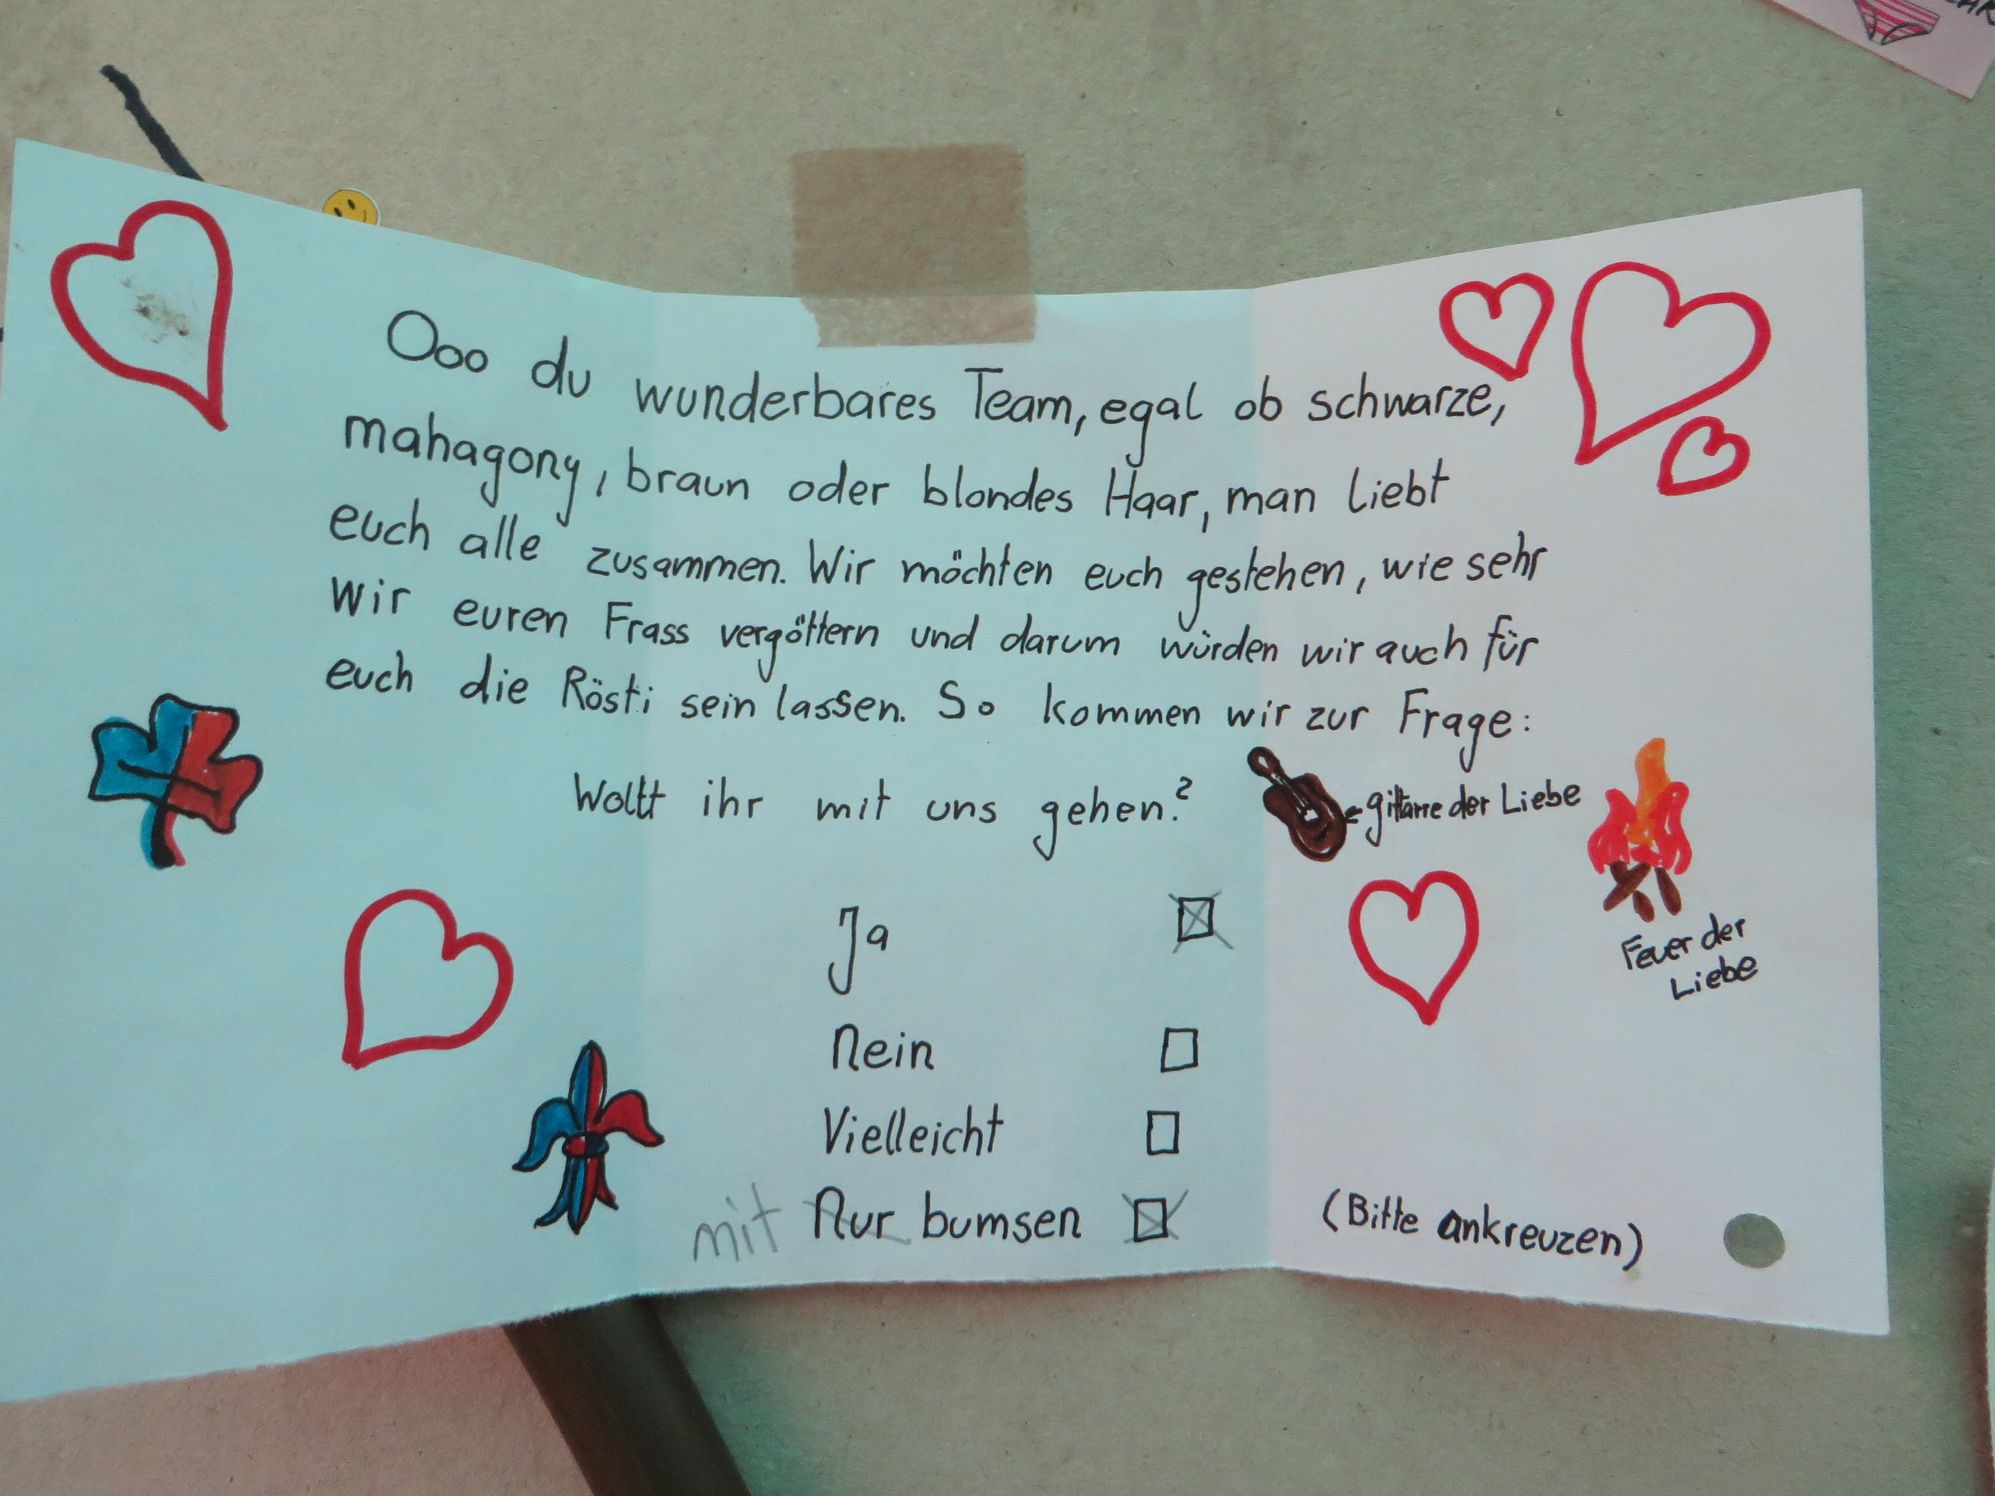 Ooo du wunderbares Team, egal ob schwarze,
mahagony, braun oder blondes Haar, man liebt
euch alle zusammen. Wir möchten euch gestehen, wie sehr
wir euren Frass vergöttern und darum würden wir auch für
euch die Rösti sein lassen. So kommen wir zur Frage:
Wollt ihr mit uns gehen?
gittarre der Liebe
Feuer der
Liebe
Ja
Nein
Vielleicht
mit Nur bumsen
(Bitte ankreuzen)